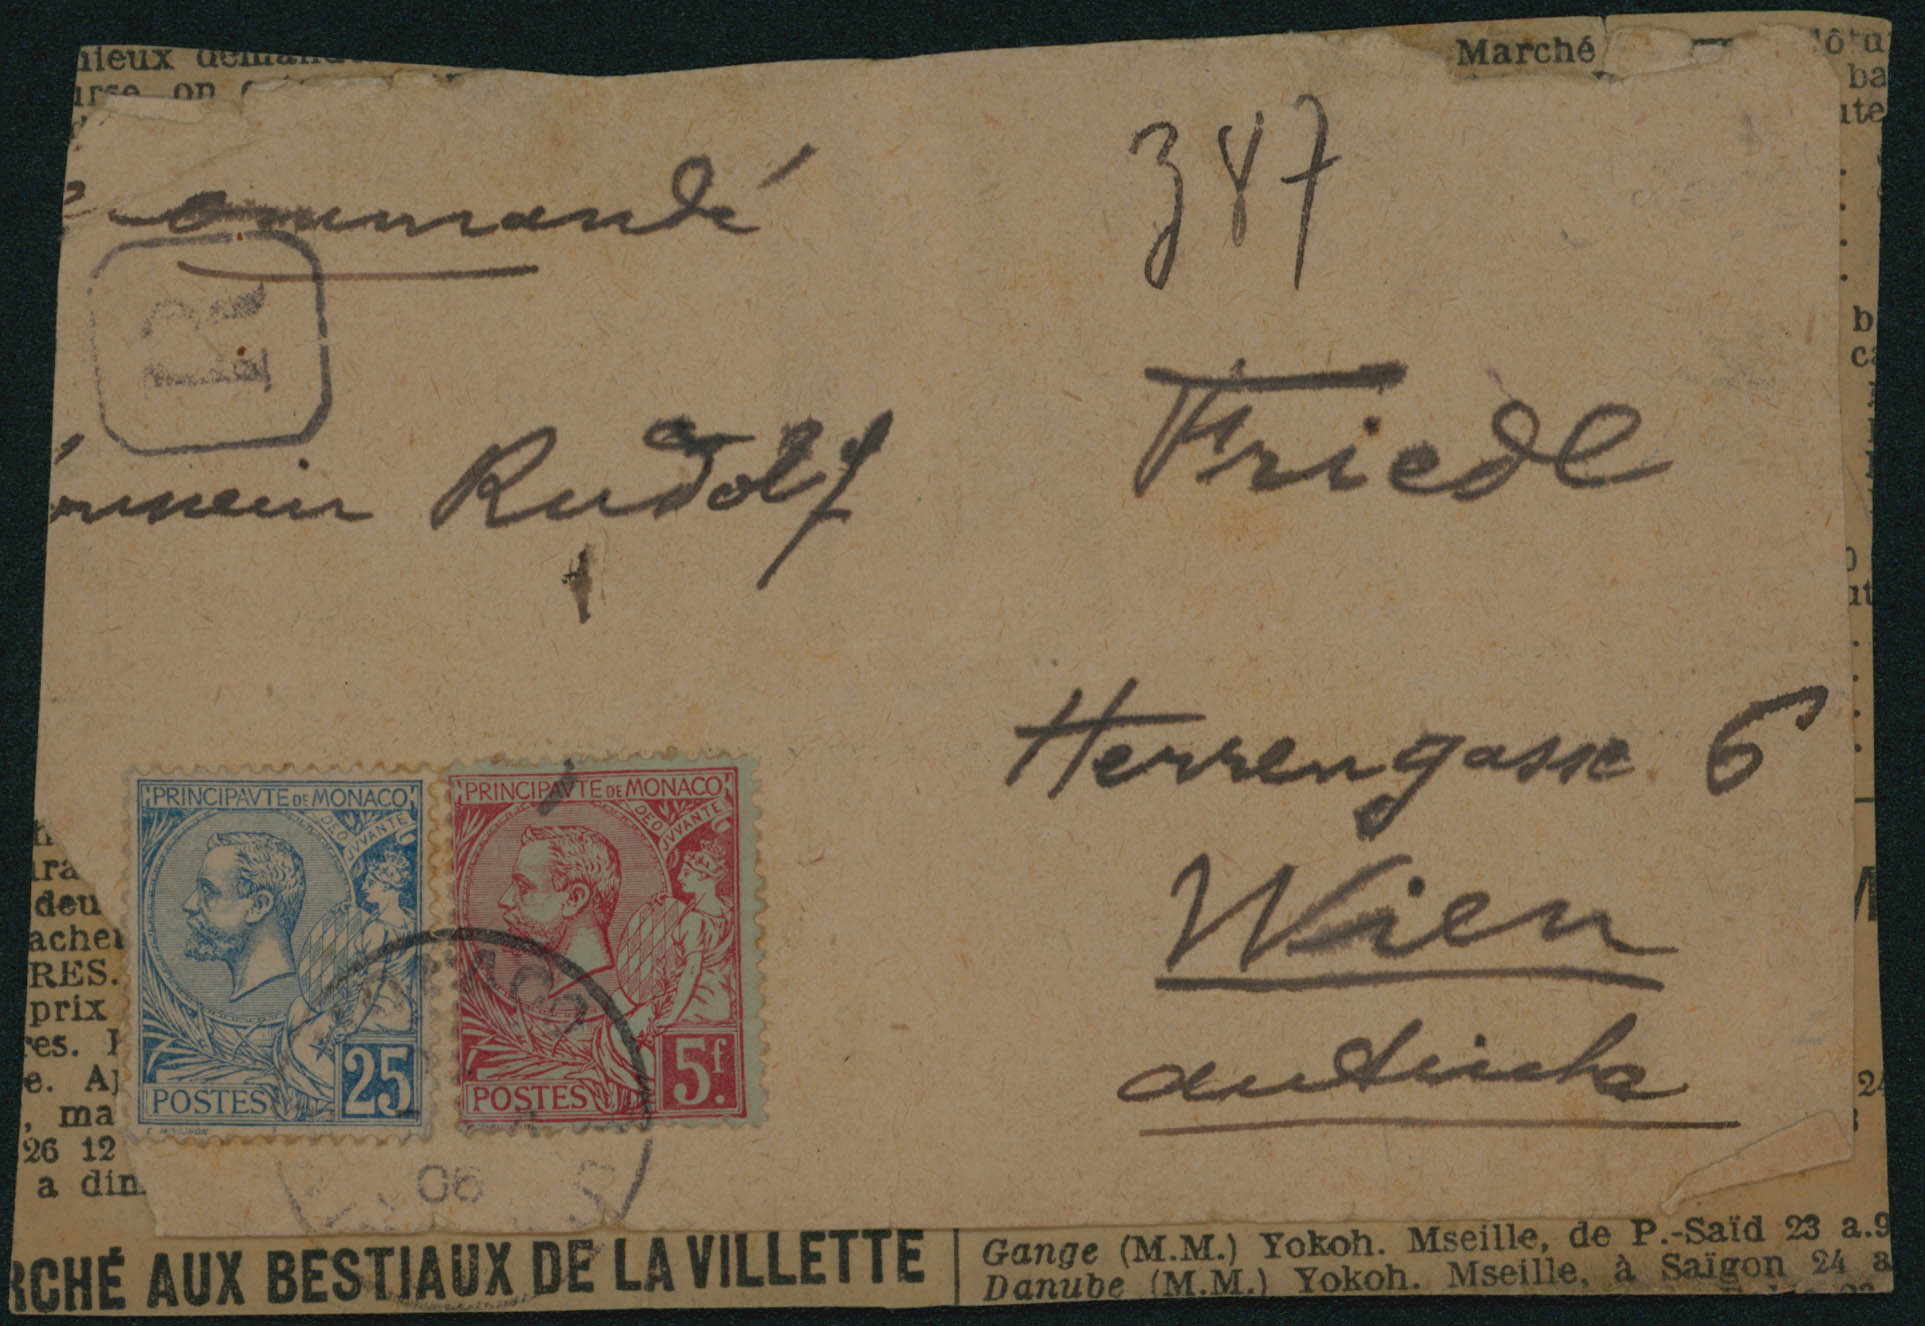 Marché
ba
urse, on
387
commandé
R
Rudolf Friedl
Herrengasse 6
Wien
autriche
PRINCIPAVTE DE MONACO
DEO JVVANTE
POSTES 25
PRINCIPAVTE DE MONACO
DEO JVVANTE
POSTES 5f.
MONACO
06
deu
RES.
prix
res.
, ma
26 12
a din
RCHÉ AUX BESTIAUX DE LA VILLETTE
Gange (M.M.) Yokoh. Mseille, de P.-Saïd 23 a.9
Danube (M.M.) Yokoh. Mseille, à Saïgon 24 a